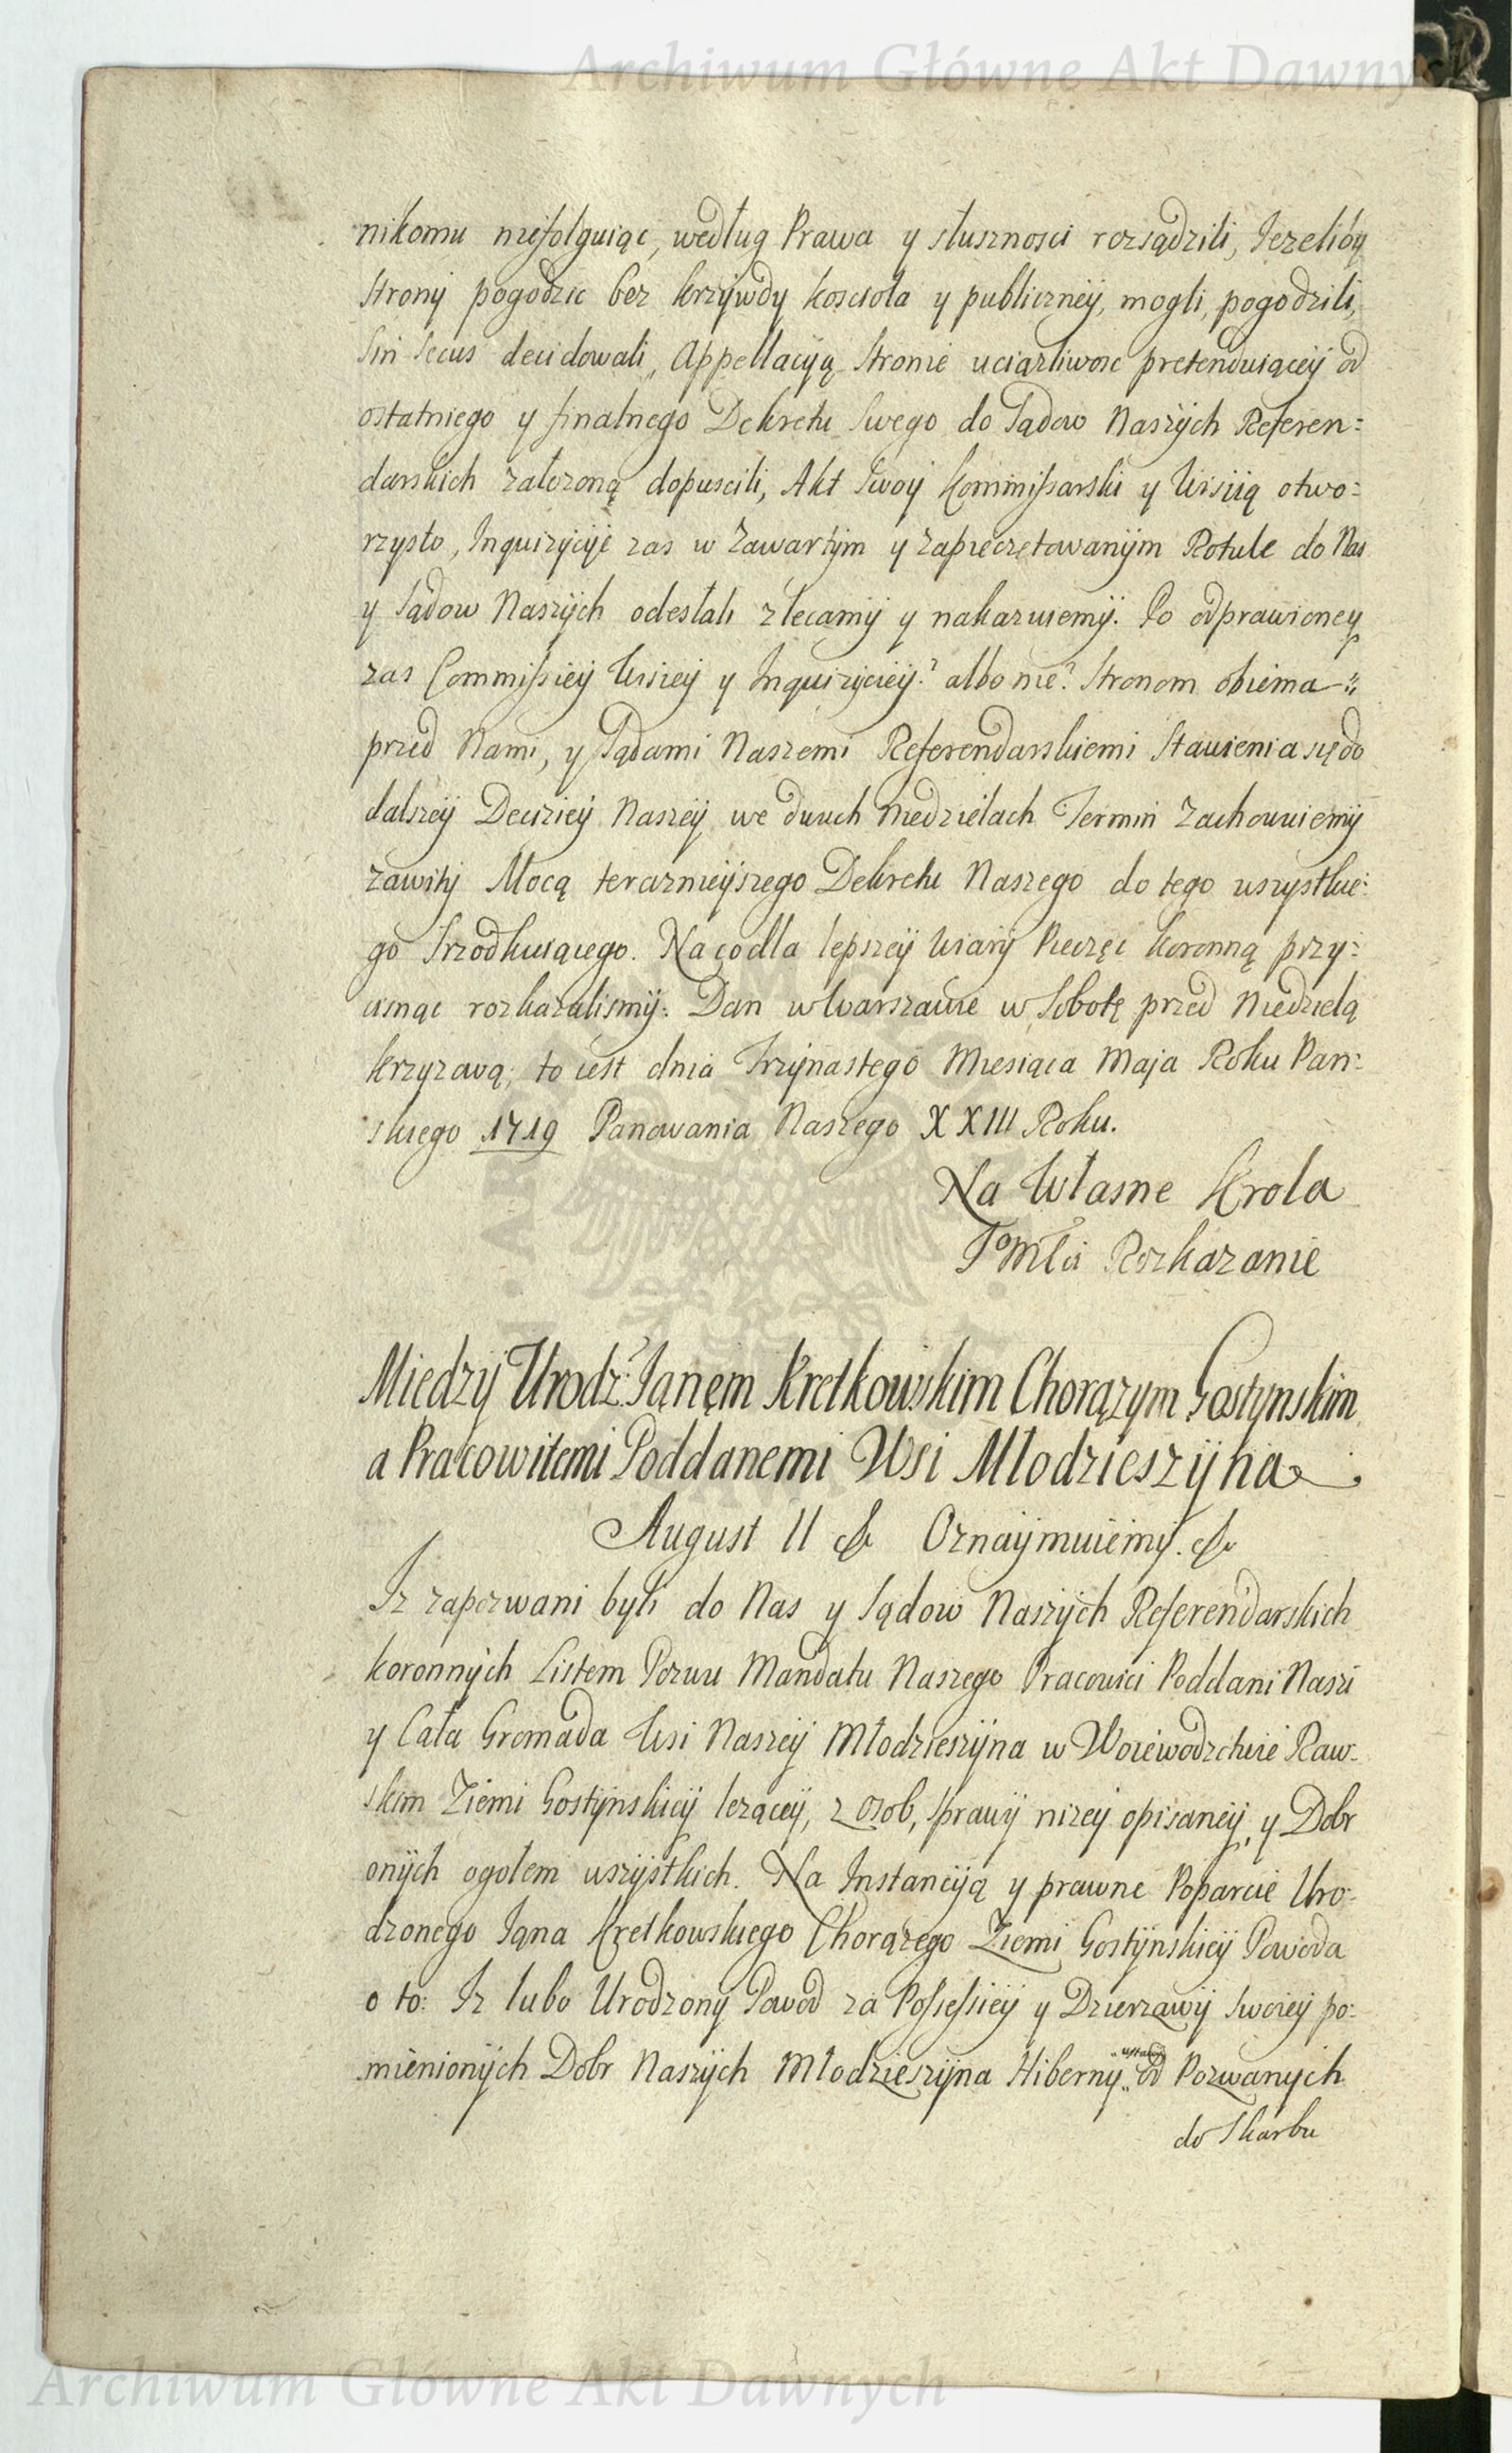 Archiwum Główne Akt Dawnych
nikomu niefolguiąc, według Prawa y słusznosci rozsądzili, Jezeliby
Strony pogodzic bez krzywdy koscioła y publiczney, mogli, pogodzili,
Sin secus decidowali, Appellacyią Stronie uciązliwosc pretenduiącey od
ostatniego y finalnego Dekretu Swego do Sądow Naszych Referen=
darskich załozoną dopuscili, Akt Swoy Kommissarski y Wisiią otwo=
rzysto, Inquizycyie zas w zawartym y zapieczętowanym Rotule do Nas
y Sądow Naszych odesłali zlecamy y nakazuiemy. Po odprawioney
zas Commissiey Wisiey y Inquizyciey? albo nie? Stronom obiema
przed Nami, y Sądami Naszemi Referendarskiemi Stawienia się do
dalszey Deciziey Naszey we dwuch Niedzielach Termin Zachowuiemy
zawity Mocą teraznieyszego Dekretu Naszego do tego wszystkie=
go Srzodkuiącego. Na co dla lepszey Wiary Pieczęc koronną przy=
cisnąc rozkazalismy. Dan w Warszawie w Sobotę przed Niedzielą
krzyzową, to iest dnia Trzynastego Miesiąca Maja Roku Pan=
skiego 1719 Panowania Naszego XXIII Roku.
Na Własne Krola
Jo Mści Rozkazanie
Miedzy Urodz: Janęm Kretkowskim Chorązym Gostynskim
a Pracowitemi Poddanemi Wsi Młodzieszyna
August II & Oznaymuiemy. &
Iz zapozwani byli do Nas y Sądow Naszych Referendarskich
koronnych Listem Pozwu Mandatu Naszego Pracowici Poddani Naszi
y Cała Gromada Wsi Naszey Młodzieszyna w Woiewodztwie Raw=
skim Ziemi Gostynskiey lezącey, z osob, sprawy nizey opisaney, y Dobr
onych ogołem wszystkich. Na Instancyią y prawne Poparcie Uro=
dzonego Jana Kretkowskiego Chorązego Ziemi Gostynskiey Powoda
o to: Iz lubo Urodzony Powod za Possessiey y Dzierzawy Swoiey po=
mienionych Dobr Naszych Młodzieszyna Hiberny od Pozwanych
do Skarbu
Archiwum Główne Akt Dawnych